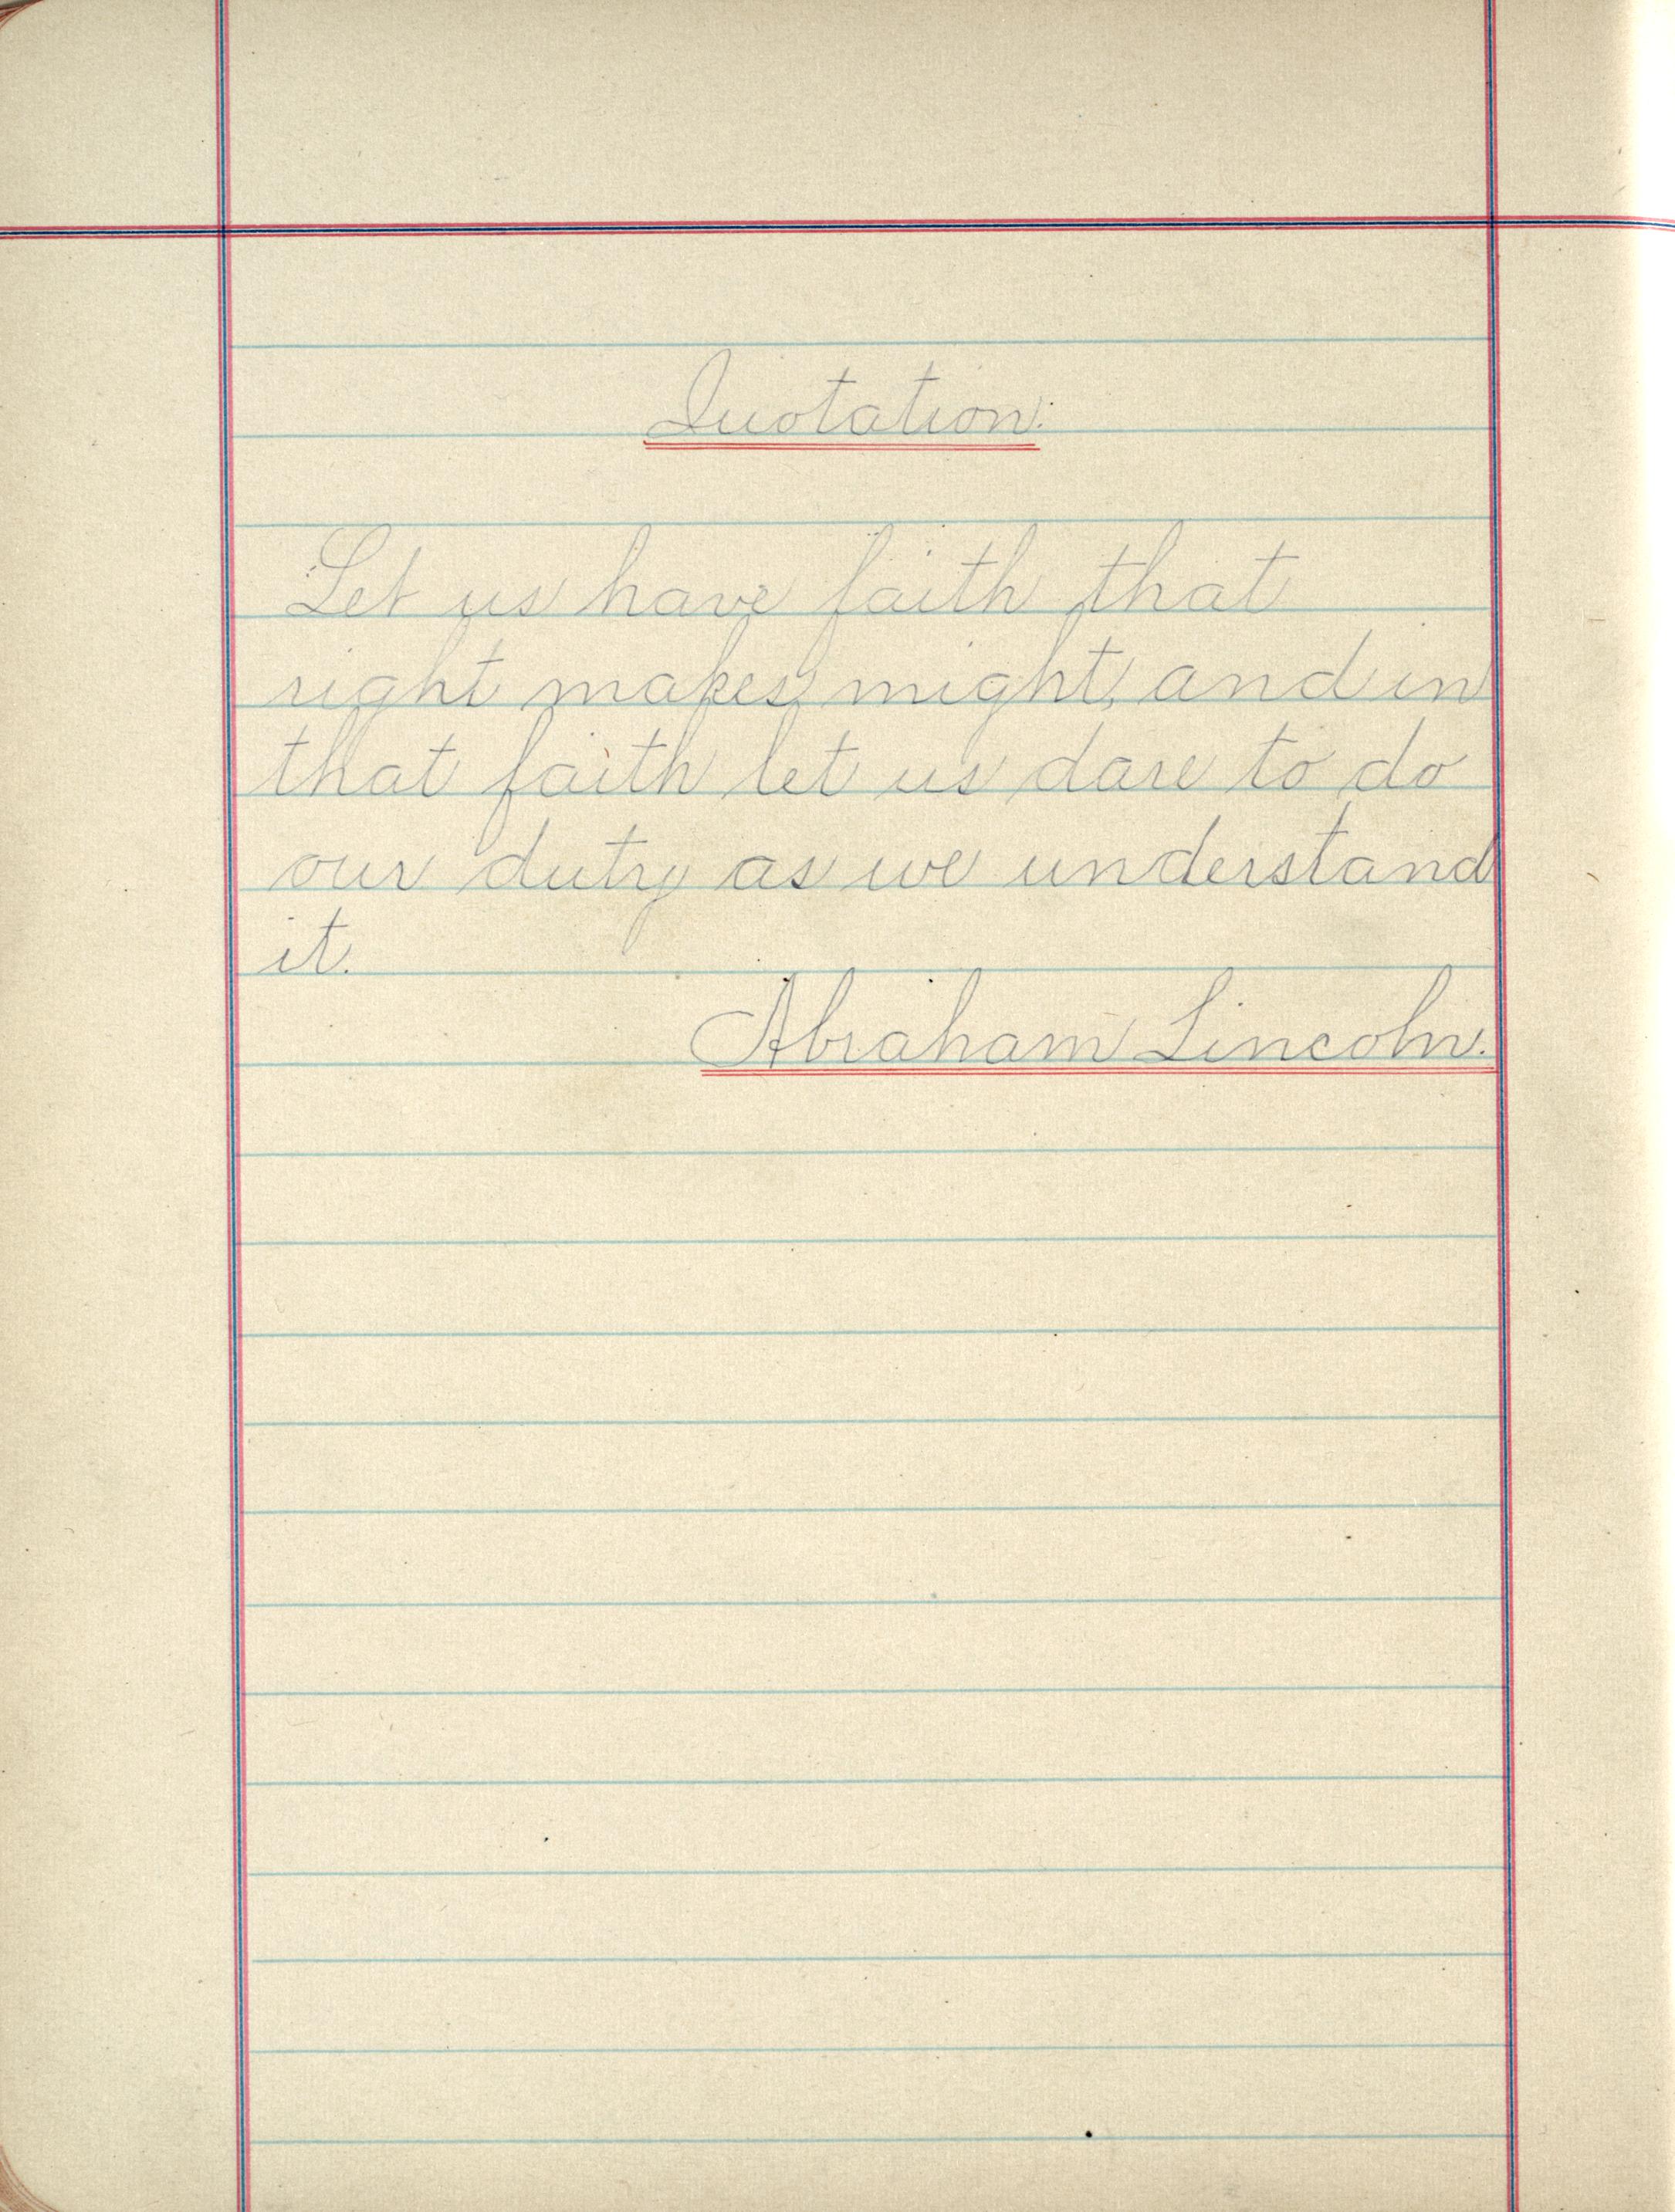 Quotation.
Let us have faith that
right makes might, and in
that faith let us dare to do
our duty as we understand
it.
Abraham Lincoln.